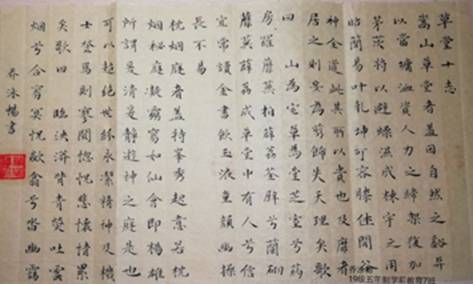 草堂十志
嵩山草堂者盖因自然之谿阜
以当墉洫资人力之缔架复加
茅茨将以避燥湿成栋宇之用
昭简易叶乾坤可容膝休闲谷
神全道此其所以贵也及靡者
居之则妄为剪饰失天理矣歌
曰 山为宅兮草为堂芝兰兮药
房罗蘼芜兮拍薜荔荃壁兮兰砌
蘼芜薜荔兮成草堂中有人兮信
宜常读金书饮玉液童颜幽操
长不易
枕烟庭者盖特峰秀起意若枕
烟秘庭凝窅窅如仙会即杨雄
所谓爰静神游之庭是也
可以超绝世纷永洁精神及机
士登焉则寥阒惚恍愁怀情累
矣歌曰 临泱漭兮背青荧吐云
烟兮合窅冥怳欻翕兮沓幽霭
乔泳杨书
19级五年制学前教育7班